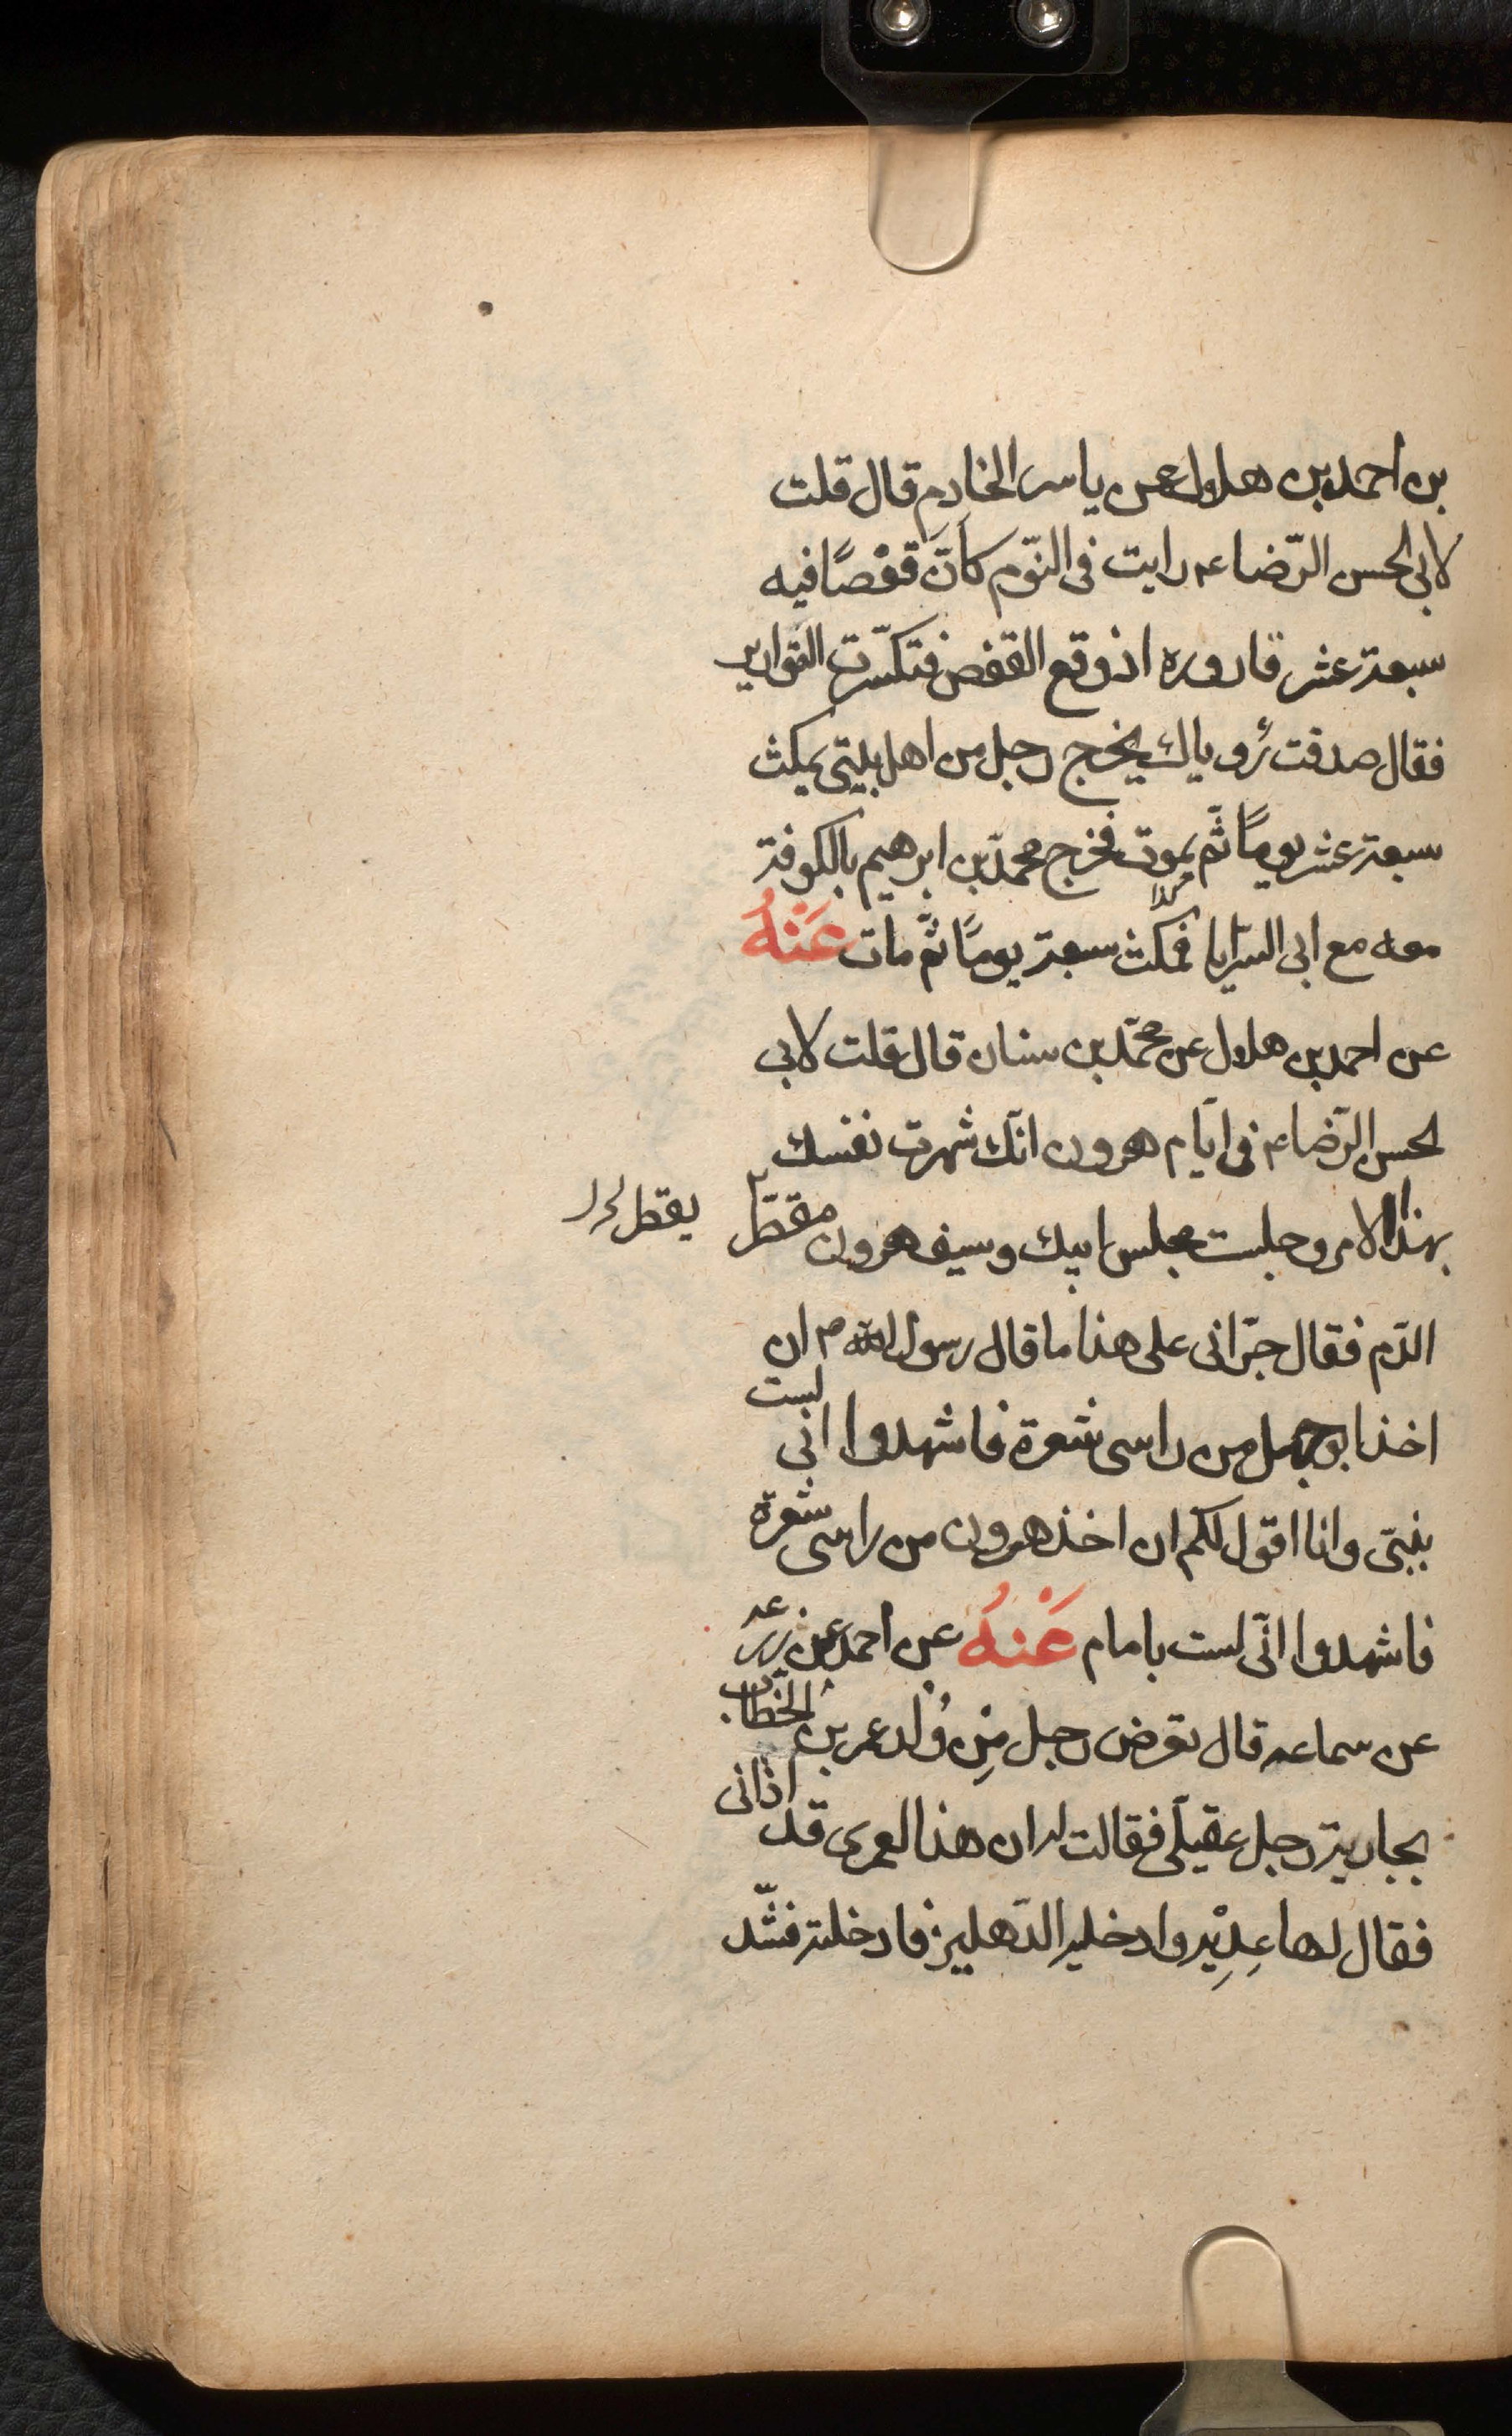 بن احمد بن هلول عن ياسر الخادم قال قلت
لابى الحسن الرّضا عم رايت فى النّوم كانّ قفْصًا فيه
سبعة عشر قاروره اذ وقع القفص فتكسّرت القوارير
فقال صدقت رؤياك يخرج رجل من اهل بيتى يمكث
سبعة عشر يومًا ثّم يموت فخرج محمّد بن ابرهيم بالكوفة
كذا
معه مع ابى السّرايا فمكث سبعة يومًا ثّم مات عَنْهُ
عن احمد بن هلول عن محمّد بن سنان قال قلت لابى
لحسن الرّضا عم فى ايّام هرون انّك شهرت نفسك
بهذا الامر وجلست مجلس ابيك وسيف هرون مقطّر يقطر
الدّم فقال جرّانى على هذا ما قال رسول الله ص ان
اخذ ابو جهل من راسى شعرة فاشهدوا انى لست
بنبىّ وانا اقول لكم ان اخذ هرون من راسى شعرة
فاشهدوا انّى لست بامام عَنْهُ عن احمد عن زرعه
عن سماعه قال تعرض رجل مِن وُلد عمر بن الخطّاب
بجارية رجل عقيلى فقالت له ان هذا العمرى قد اذانى
فقال لها عِدِيْه وادخليه الدّهليز فادخلته فشّد